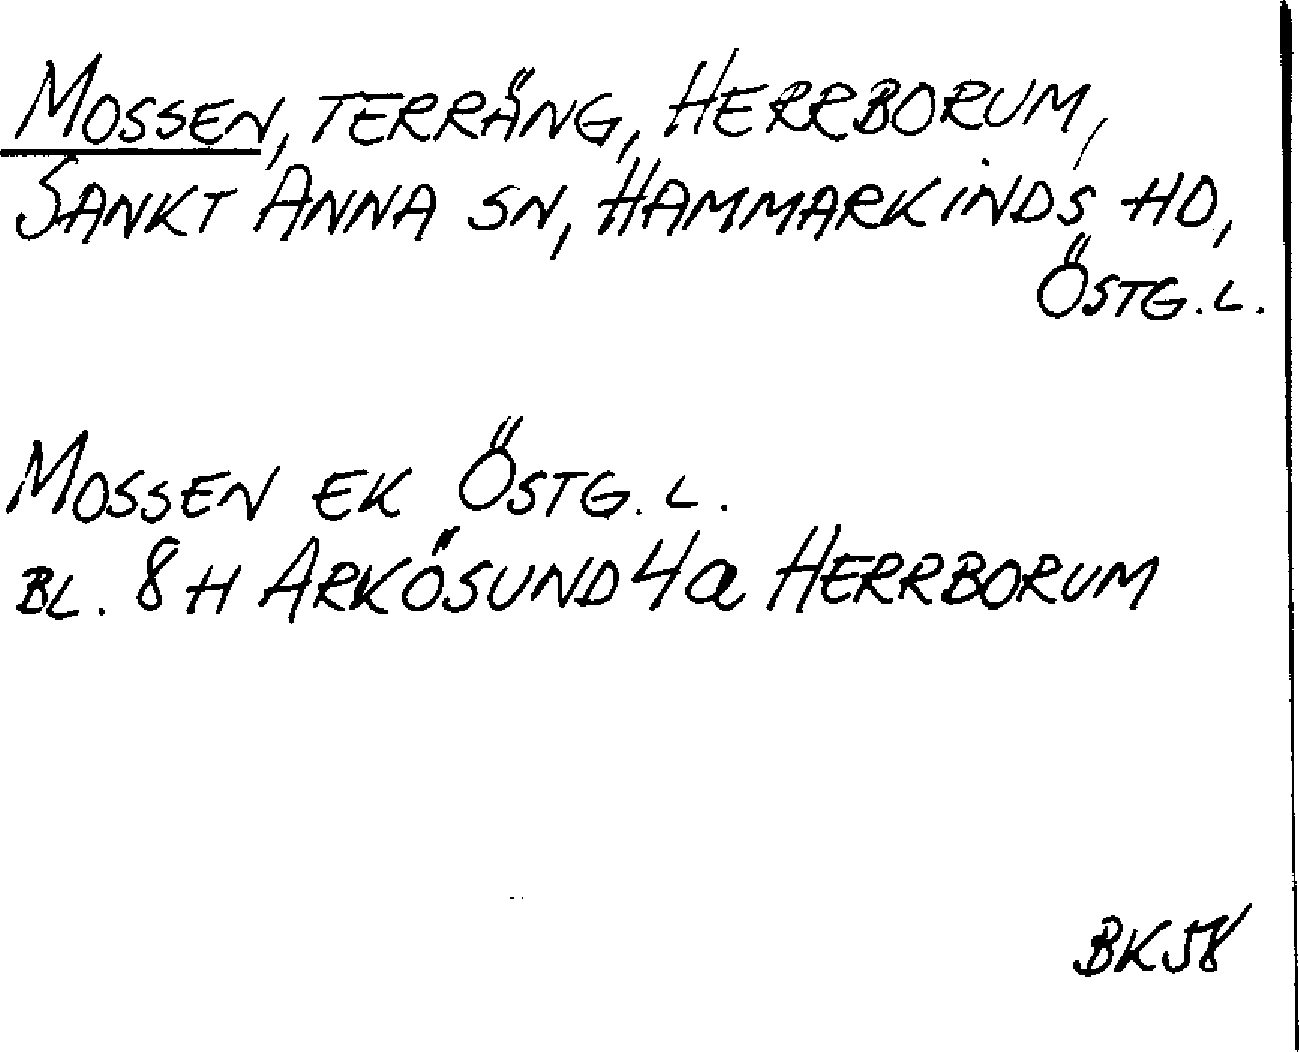 MOSSEN, TERRÄNG, HERRBORUM,
SANKT ANNA SN, HAMMARKINDS HD,
ÖSTG. L.
MOSSEN EK ÖSTG. L.
BL. 8H ARKÖSUND 4a HERRBORUM
BK58